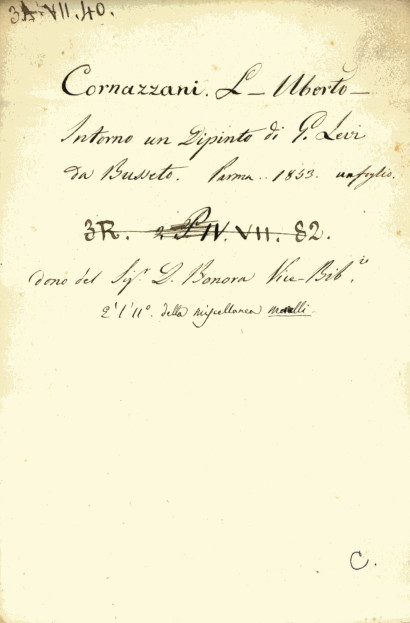 3A. VII. 40.
Cornazzani. L - Uberto -
Intorno un Dipinto di G. Levi
da Busseto. Parma.. 1853. un foglio.
3R. IV. VII. 82.
dono del Sigr. D. Bonora Vice-Bib.io
È l'11°. della miscellanea
C.